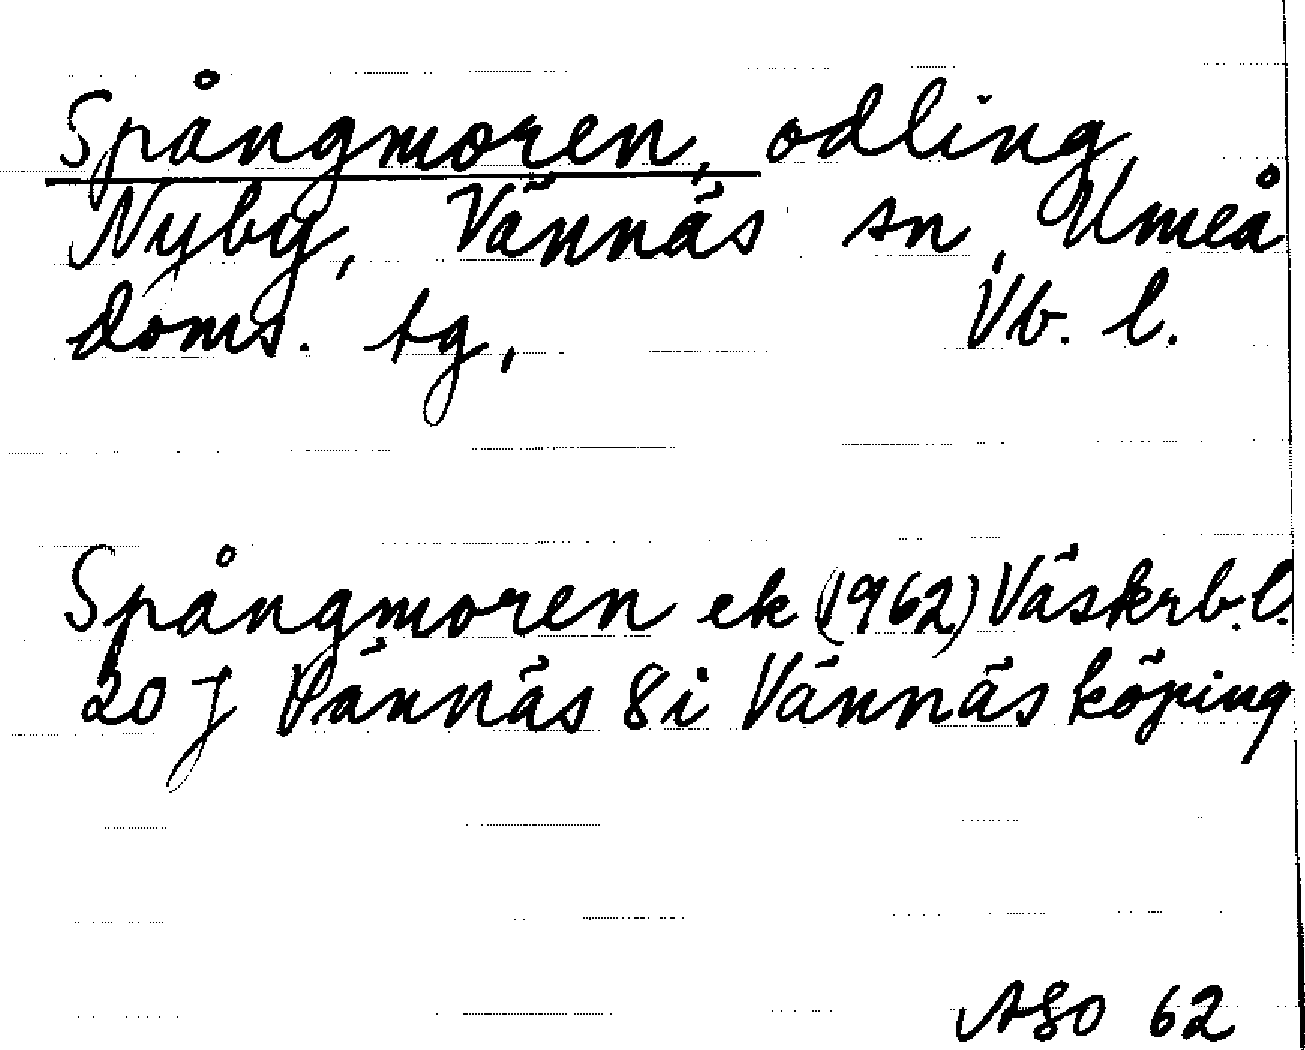 Spångmoren, odling,
Nyby, Vännäs sn, Umeå
doms. tg, Vb. l.
Spångmoren ek (1962) Väskrb.l.
20 J Vännäs 8i Vännäs köping
ASO 62